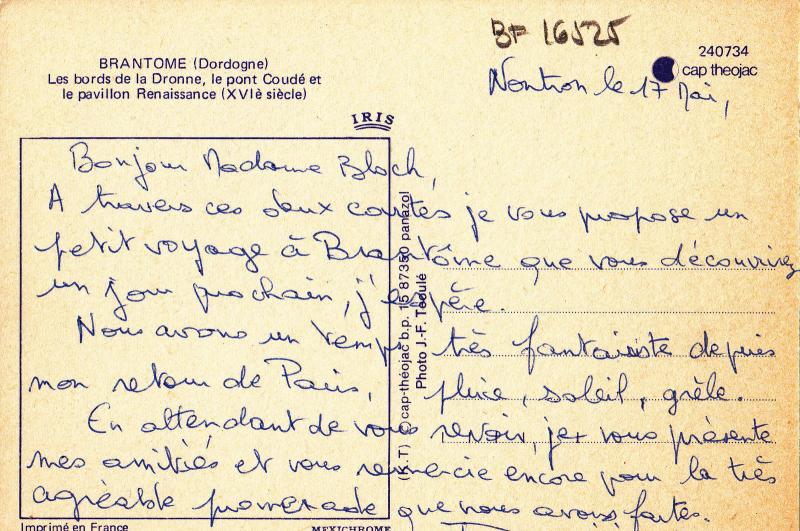 BF 16525
BRANTOME (Dordogne)
Les bords de la Dronne, le pont Coudé et
le pavillon Renaissance (XVIè siècle)
240734
cap theojac
Nontron le 17 Mai,
IRIS
Bonjour Madame Bloch,
A travers ces deux cartes je vous propose un
petit voyage à Brantôme que vous découvrirez
un jour prochain, j'espère.
Nous avons un temps très fantaisiste depuis
mon retour de Paris, pluie, soleil, grêle.
En attendant de vous revoir, je vous présente
mes amitiés et vous remercie encore pour la très
agréable promenade que nous avons faites.
cap-théojac b.p. 15 87350 panazol
Photo J.-F. Teoulé
Imprimé en France
MEXICHROME